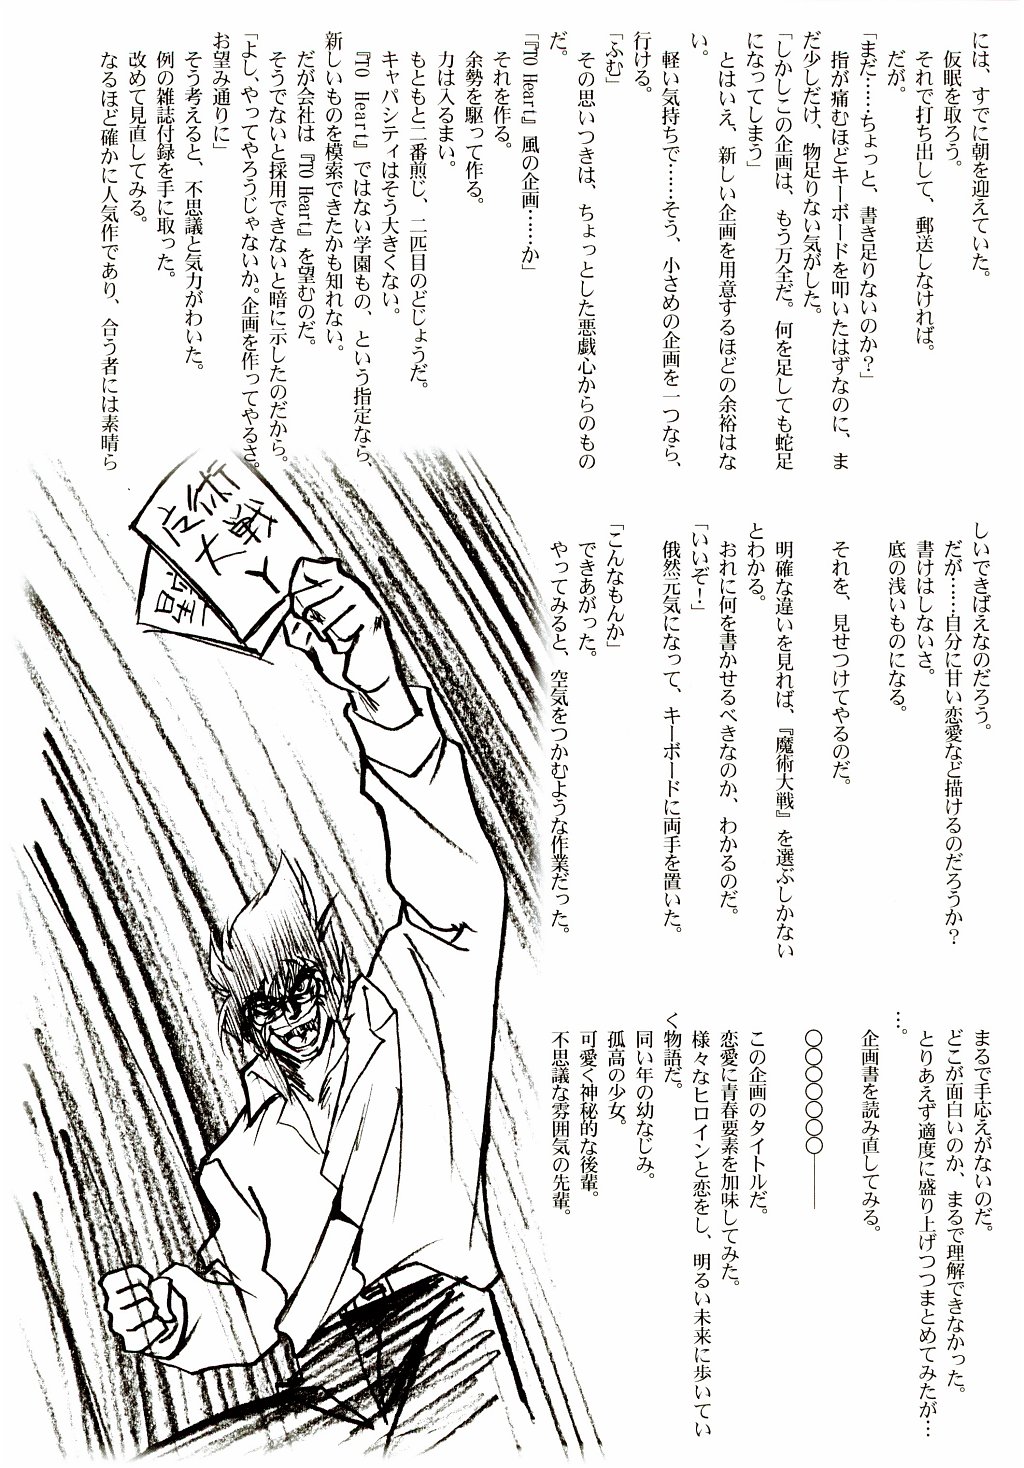 には、すでに朝を迎えていた。
仮眠を取ろう。
それで打ち出して、郵送しなければ。
だが。
「まだ……ちょっと、書き足りないのか？」
指が痛むほどキーボードを叩いたはずなのに、ま
だ少しだけ、物足りない気がした。
「しかしこの企画は、もう万全だ。何を足しても蛇足
になってしまう」
とはいえ、新しい企画を用意するほどの余裕はな
い。
軽い気持ちで……そう、小さめの企画を一つなら、
行ける。
「ふむ」
その思いつきは、ちょっとした悪戯心からのもの
だ。
「『TO Heart』風の企画……か」
それを作る。
余勢を駆って作る。
力は入るまい。
もともと二番煎じ、二匹目のどじょうだ。
キャパシティはそう大きくない。
『TO Heart』ではない学園もの、という指定なら、
新しいものを模索できたかも知れない。
だが会社は『TO Heart』を望むのだ。
そうでないと採用できないと暗に示したのだから。
「よし、やってやろうじゃないか。企画を作ってやるさ。
お望み通りに」
そう考えると、不思議と気力がわいた。
例の雑誌付録を手に取った。
改めて見直してみる。
なるほど確かに人気作であり、合う者には素晴ら
しいできばえなのだろう。
だが……自分に甘い恋愛など描けるのだろうか？
書けはしないさ。
底の浅いものになる。
それを、見せつけてやるのだ。
明確な違いを見れば、『魔術大戦』を選ぶしかない
とわかる。
おれに何を書かせるべきなのか、わかるのだ。
「いいぞ！」
俄然元気になって、キーボードに両手を置いた。
「こんなもんか」
できあがった。
やってみると、空気をつかむような作業だった。
まるで手応えがないのだ。
どこが面白いのか、まるで理解できなかった。
とりあえず適度に盛り上げつつまとめてみたが…
…。
企画書を読み直してみる。
○○○○○○○――
この企画のタイトルだ。
恋愛に青春要素を加味してみた。
様々なヒロインと恋をし、明るい未来に歩いてい
く物語だ。
同い年の幼なじみ。
孤高の少女。
可愛く神秘的な後輩。
不思議な雰囲気の先輩。